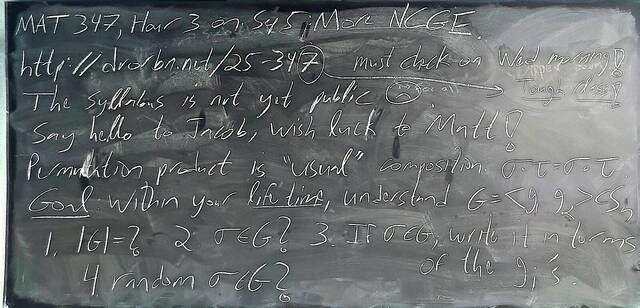 MAT 347, Hour 3 on Sep 5: More NCGE.
http://drorbn.net/25-347 must check on Wed morning!
The syllabus is not yet public Tough class!
Say hello to Jacob, wish luck to Matt!
Permutation product is "usual" composition σ·τ=σ∘τ
Goal Within your lifetime, understand G=<g₁ g₂>⊂Sₙ
1. |G|=? 2 σ∈G? 3. If σ∈G, write it in terms
of the gᵢ's.
4 random σ∈G?